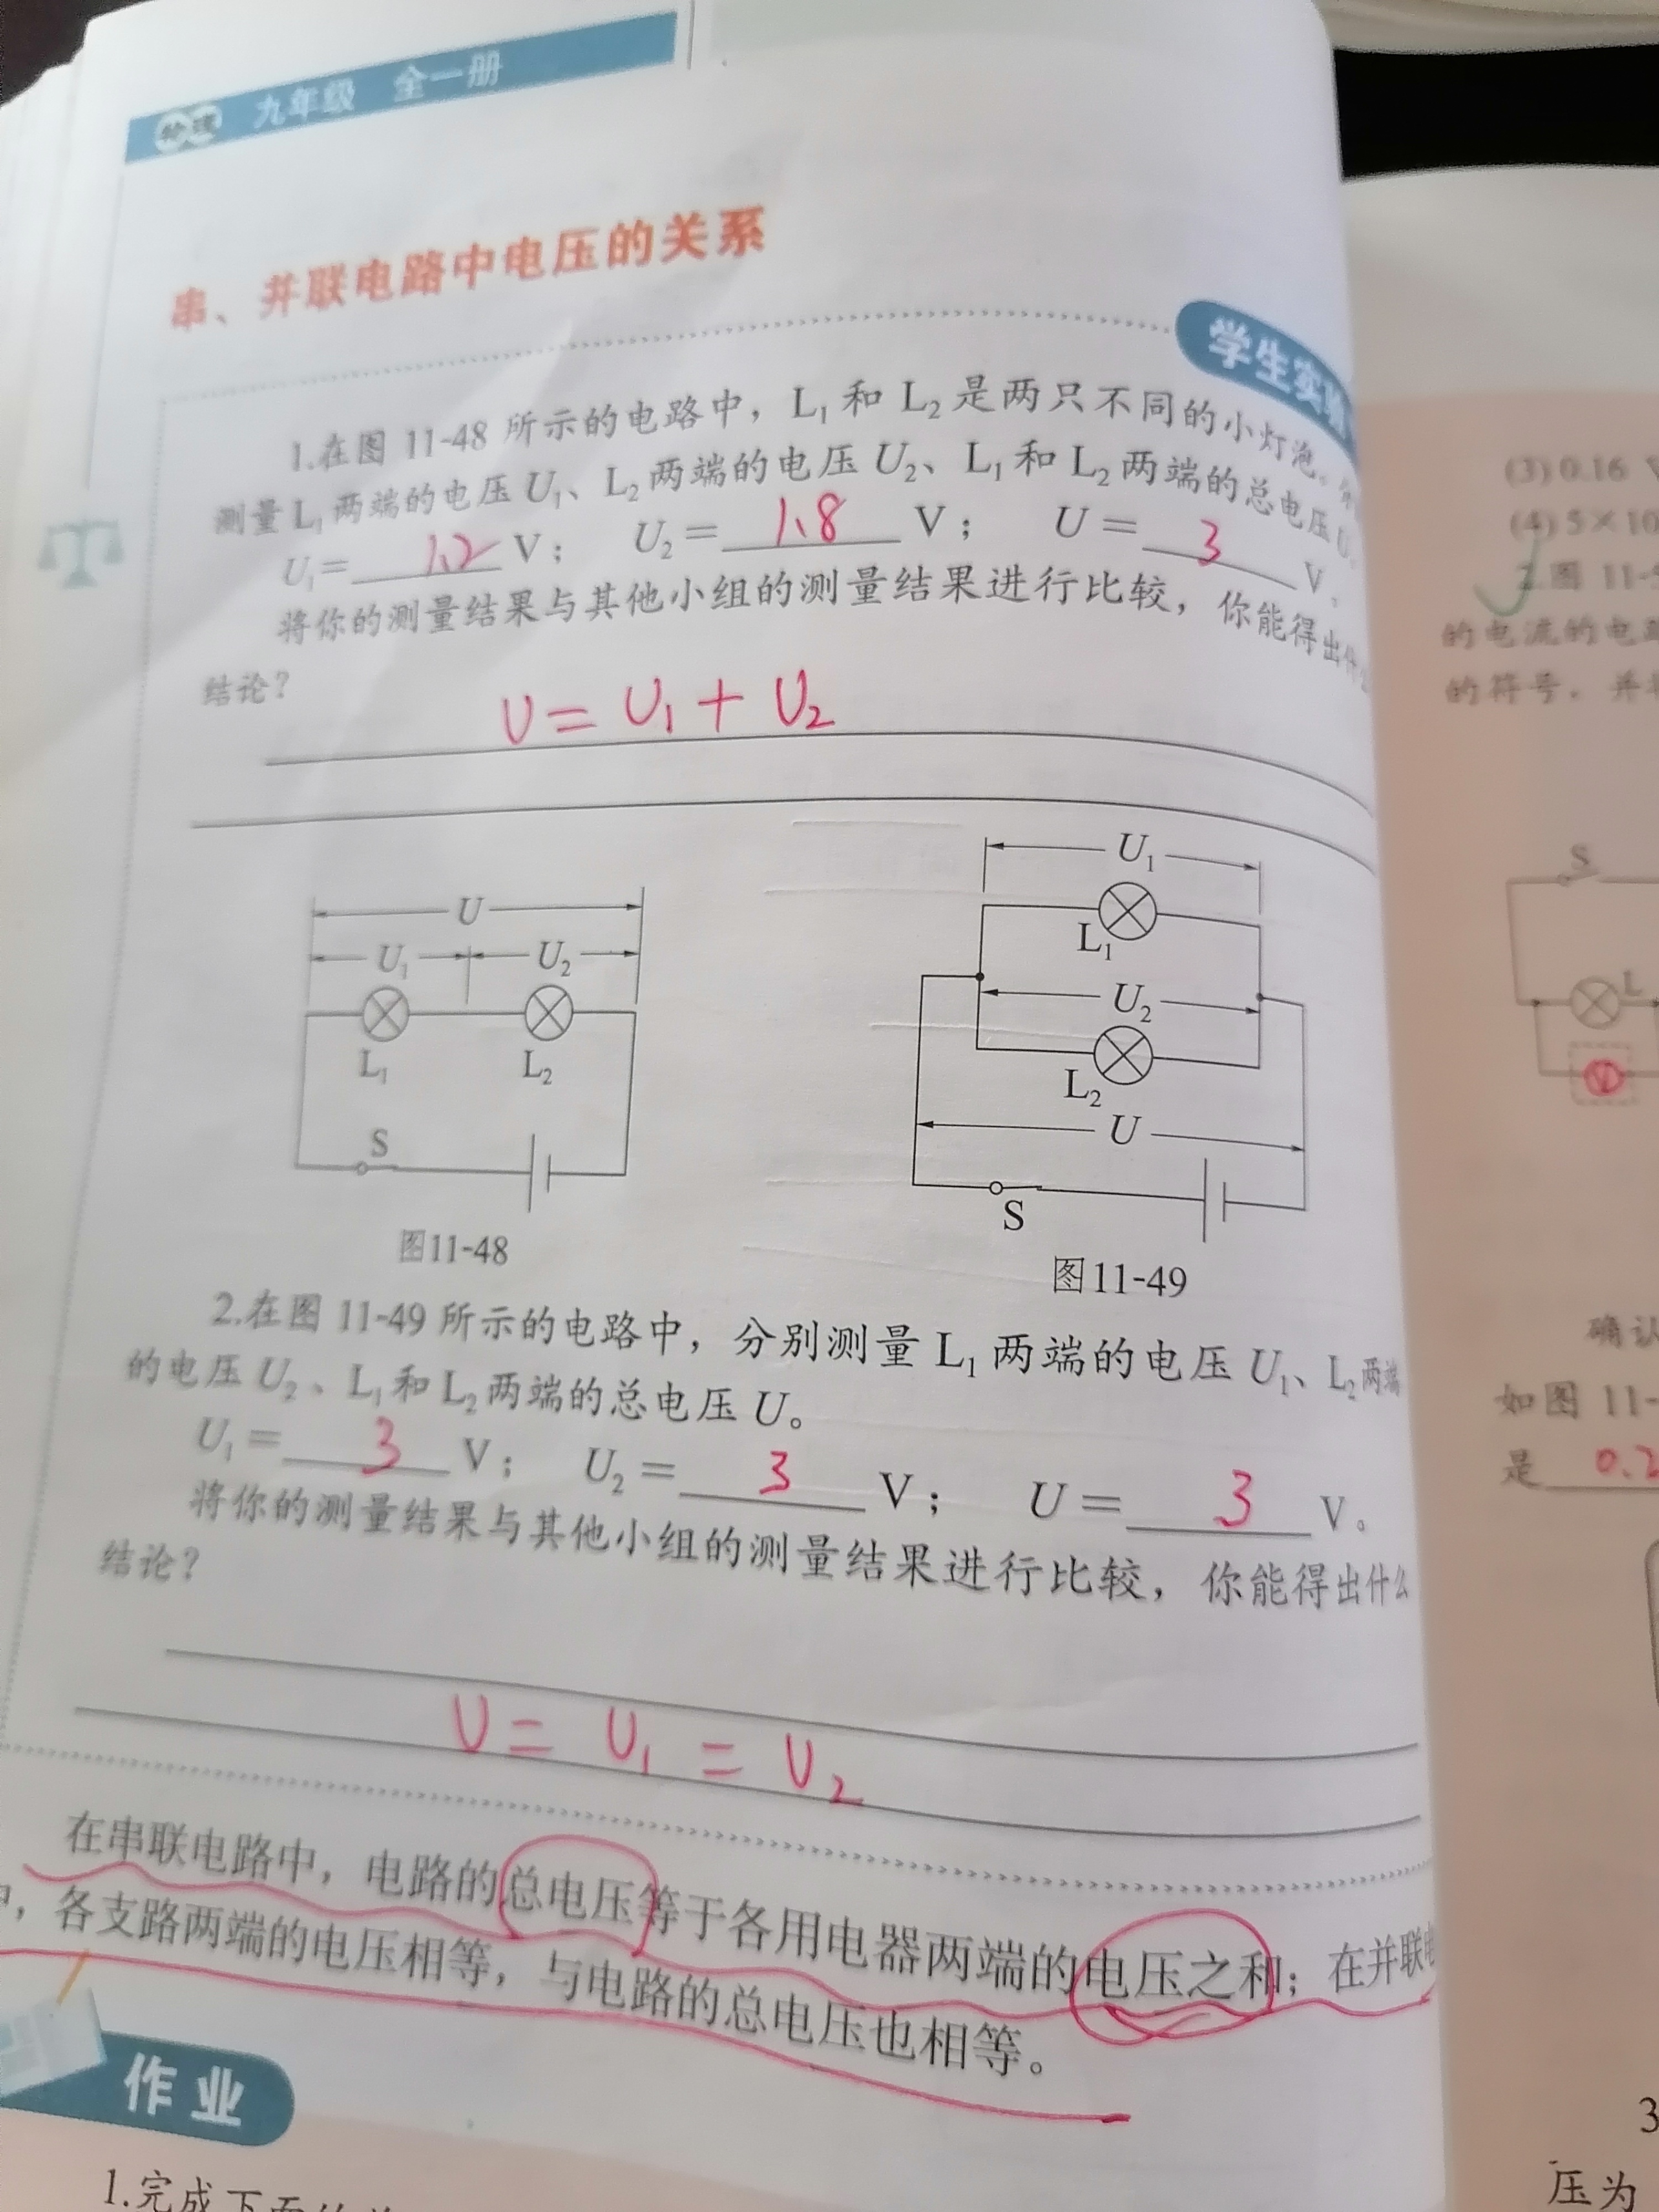 物理 九年级 全一册
串、并联电路中电压的关系
学生实验
1.在图 11-48 所示的电路中，L₁ 和 L₂ 是两只不同的小灯泡。
测量 L₁ 两端的电压 U₁、L₂ 两端的电压 U₂、L₁ 和 L₂ 两端的总电压 U。
U₁= 1.2 V； U₂= 1.8 V； U= 3 V。
将你的测量结果与其他小组的测量结果进行比较，你能得出什么
结论？
U = U₁ + U₂
U
U₁ U₂
L₁ L₂
S
图11-48
U₁
L₁
U₂
L₂
U
S
图11-49
2.在图 11-49 所示的电路中，分别测量 L₁ 两端的电压 U₁、L₂ 两端
的电压 U₂、L₁ 和 L₂ 两端的总电压 U。
U₁= 3 V； U₂= 3 V； U= 3 V。
将你的测量结果与其他小组的测量结果进行比较，你能得出什么
结论？
U = U₁ = U₂
在串联电路中，电路的总电压等于各用电器两端的电压之和；在并联
，各支路两端的电压相等，与电路的总电压也相等。
作业
1.完成下面的
(3) 0.16
(4) 5×10
2.图 11-5
的电流的电路
的符号，并
S
L
V
确认
如图 11-
是 0.2
3
压为